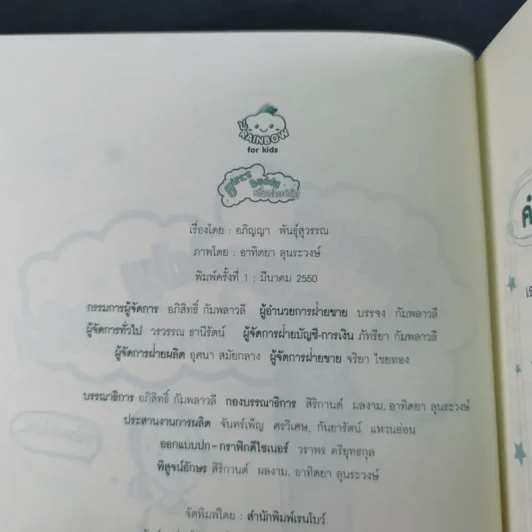 RAINBOW
for kids
Buddy
เรื่องโดย : อภิญญา พันธุ์สุวรรณ
ภาพโดย : อาทิตยา ลุนระวงษ์
พิมพ์ครั้งที่ 1 : มีนาคม 2550
กรรมการผู้จัดการ อภิสิทธิ์ กัมพลาวลี ผู้อำนวยการฝ่ายขาย บรรจง กัมพลาวลี
ผู้จัดการทั่วไป วรวรรณ ธานีรัตน์ ผู้จัดการฝ่ายบัญชี-การเงิน ภัทรียา กัมพลาวลี
ผู้จัดการฝ่ายผลิต อุศนา สมัยกลาง ผู้จัดการฝ่ายขาย จริยา ไชยทอง
บรรณาธิการ อภิสิทธิ์ กัมพลาวลี กองบรรณาธิการ สิริกานต์ ผลงาม, อาทิตยา ลุนระวงษ์
ประสานงานการผลิต จันทร์เพ็ญ ศรวิเศษ, กันยารัตน์ แหวนอ่อน
ออกแบบปก-กราฟิกดีไซเนอร์ วราพร ตรียุทธกุล
พิสูจน์อักษร สิริกานต์ ผลงาม, อาทิตยา ลุนระวงษ์
จัดพิมพ์โดย : สำนักพิมพ์เรนโบว์